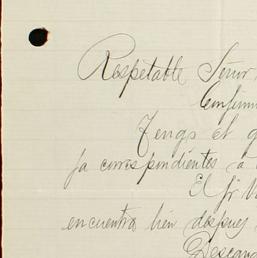 Respetable Señor
Confirm
Tengo el g
ja correspondientes a
El Sr V
encuentra bien despues
Descan